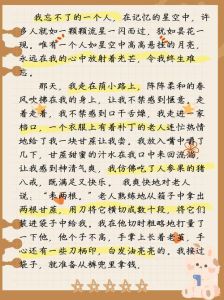 我忘不了的一个人，在记忆的星空中，许
多人就如一颗颗流星一闪而过，犹如昙花一
现，唯有一个人如星空中高高悬挂的月亮，
永远在我的心中放射着光芒，令我终生难
忘。
那天，我走在荫小路上，阵阵柔和的春
风吹拂在我的身上，让我不禁感到惬意。走
着走着，我不禁感到口干舌燥，我走进一家
档口，一个衣服上有着补丁的老人还十分热情
地给了我一块甘蔗让我尝，我放入嘴中嚼了
几下，甘蔗甜蜜的汁水在我口中来回流淌，
让我感到神清气爽，我仿佛吃了人参果的猪
八戒，既满足又快乐。我爽快地对老人
说，“来两根，”老人熟练地从箱子中拿出
两根甘蔗，用刀将它横切成数十段，将它们
装进袋子中给我，在我他切时粗略地打量了
一下他，他个子不高，手掌上长着老茧，手
心还有些刀柄印，白发油亮亮的，我接过
袋子，就准备从裤兜里拿钱，